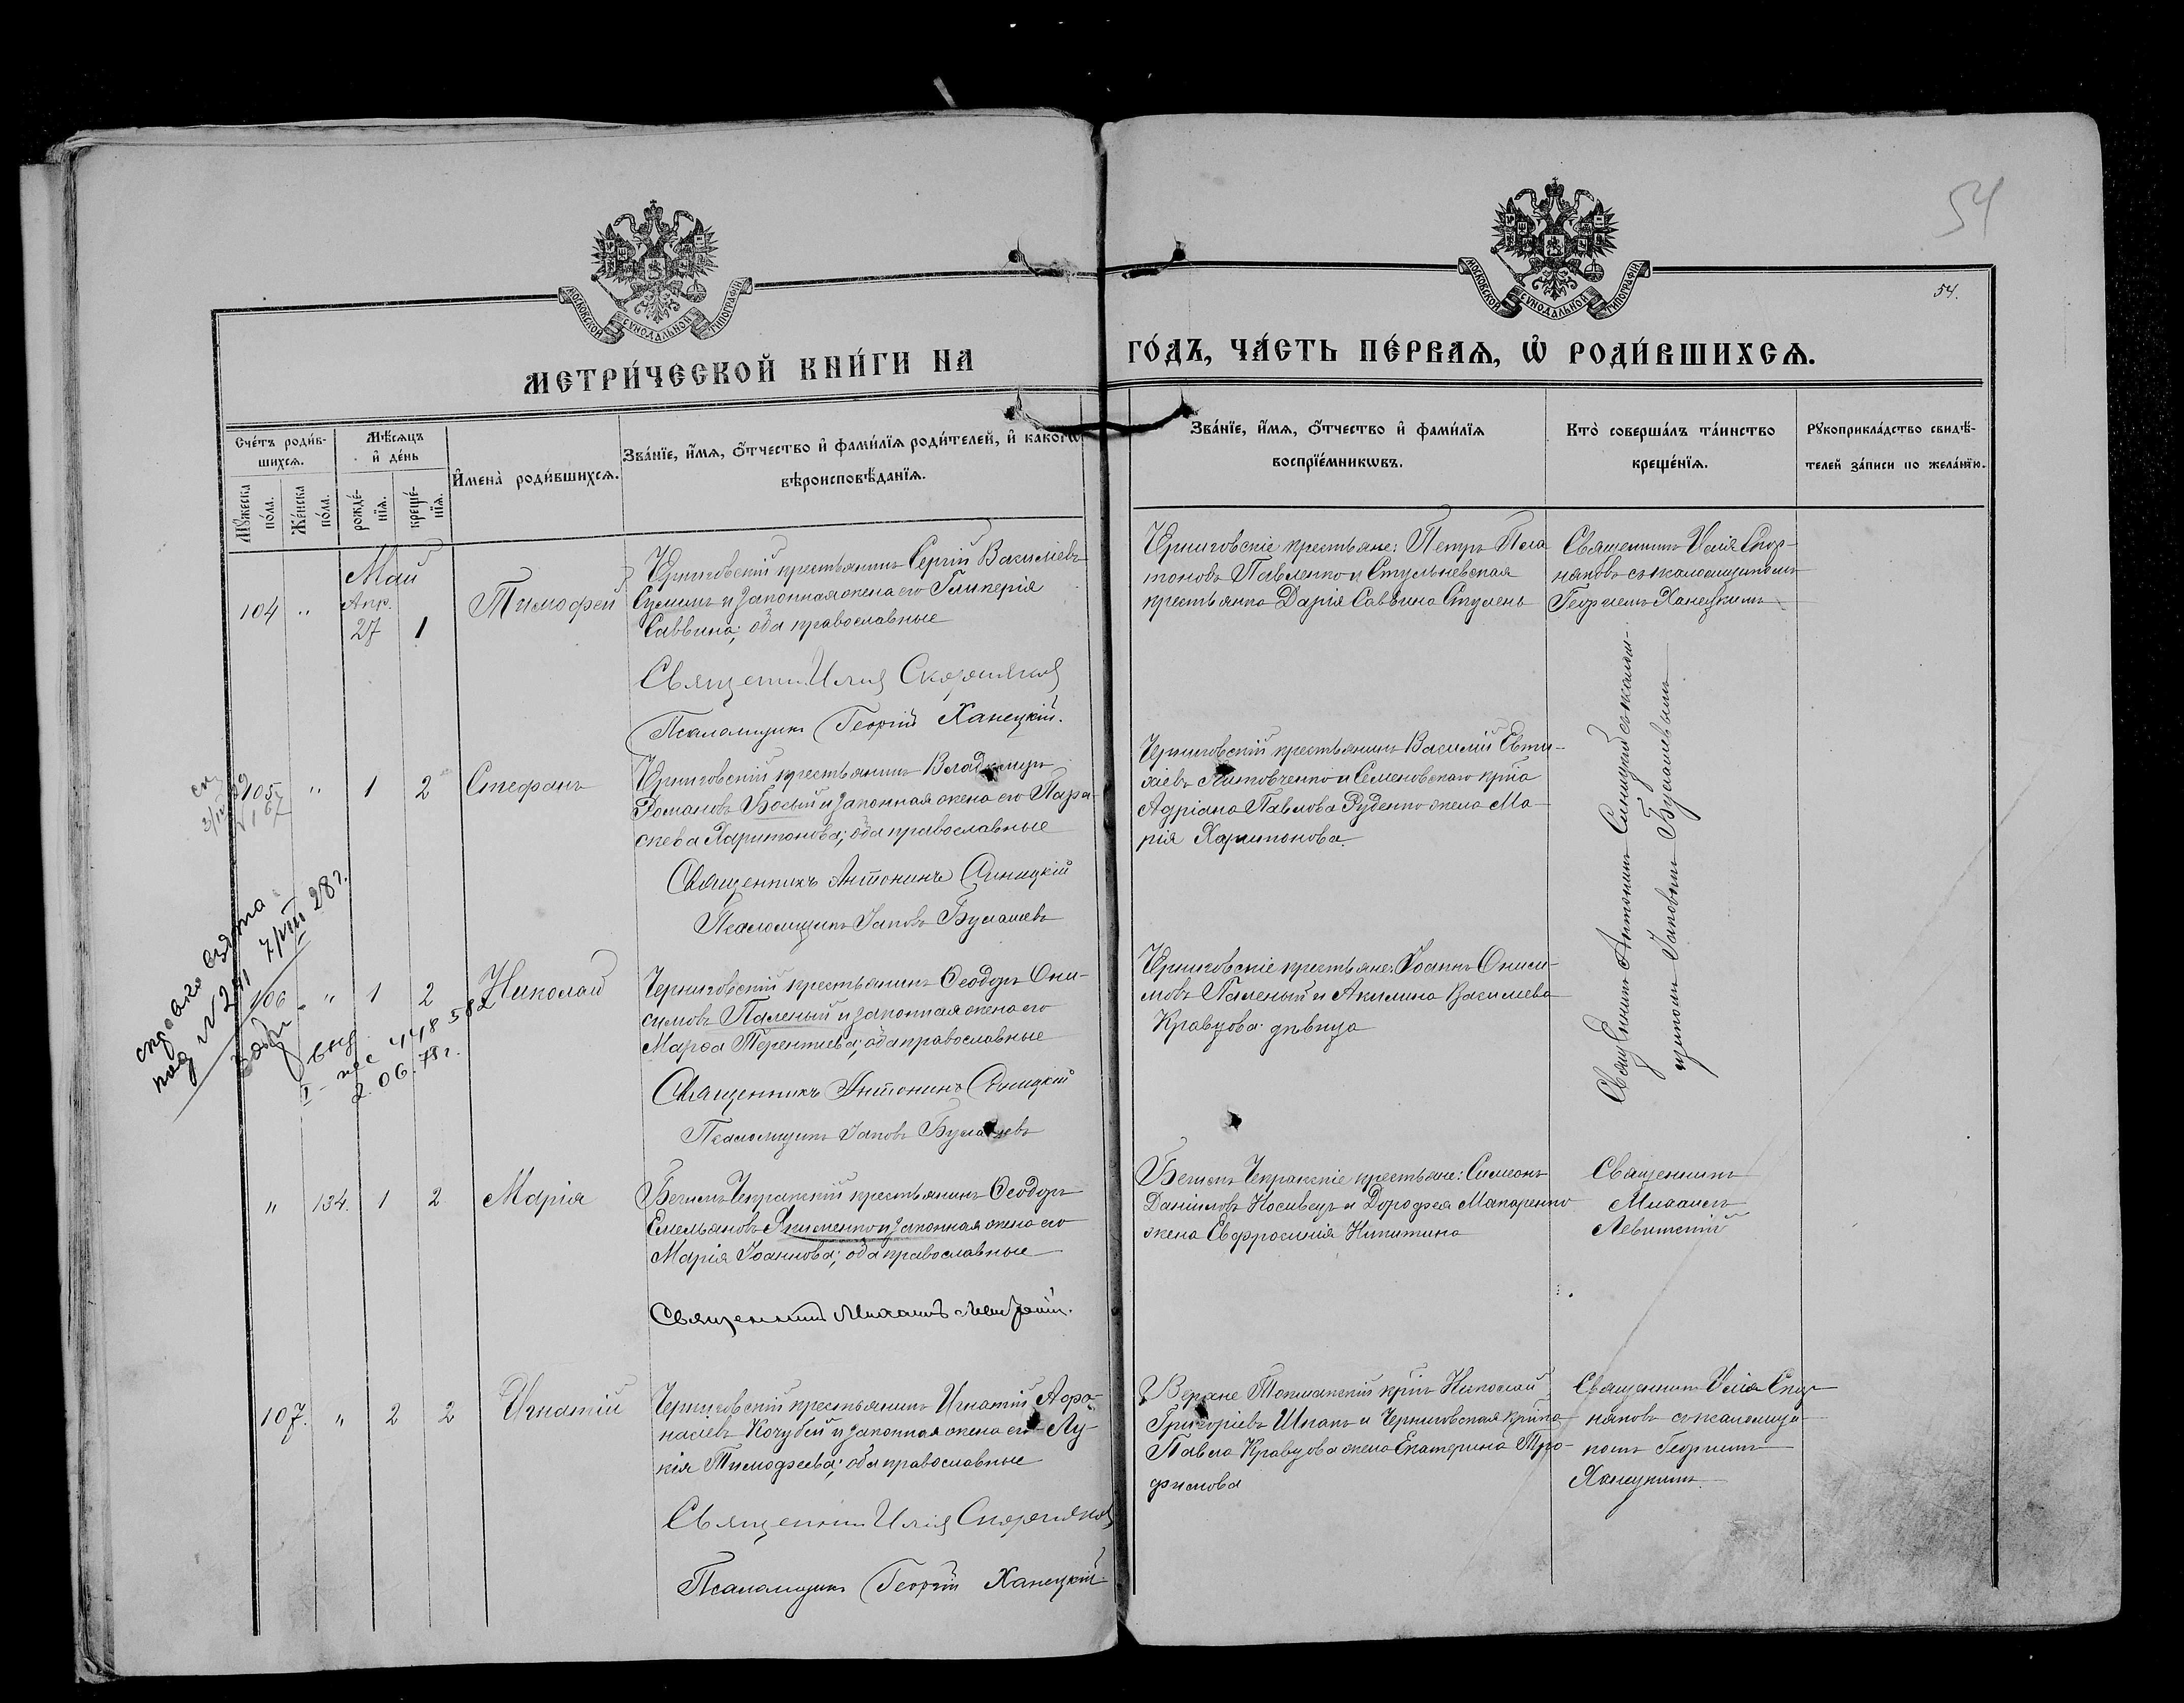 54
54.
МОСКОВСКОЙ СѴНОДАЛЬНОЙ ТИПОГРАФІИ
МОСКОВСКОЙ СѴНОДАЛЬНОЙ ТИПОГРАФІИ
МЕТРИ́ЧЕСКОЙ КНИ́ГИ НА
ГО́ДЪ, ЧА́СТЬ ПЕ́РВАѦ, Ѽ РОДИ́ВШИХСѦ.
Сче́тъ роди́в-
шихсѧ.
Мѣ́сѧцъ
и҆ де́нь
Мꙋ́жеска
по́ла.
Же́нска
по́ла.
рожде́-
нїѧ.
креще́-
нїѧ.
И҆мена̀ роди́вшихсѧ.
Зва́нїе, и҆́мѧ, ѻ҆́тчество и҆ фами́лїѧ роди́телей, и҆ какогѡ
вѣроисповѣ́данїѧ.
Зва́нїе, и҆́мѧ, ѻ҆́тчество и҆ фами́лїѧ
воспрїе́мникѡвъ.
Кто̀ соверша́лъ та́инство
креще́нїѧ.
Рꙋкоприкла́дство свидѣ́-
телей за́писи по жела́нїю.
Май
104 " Апр. 27 1
Тимофей
Черниговскій крестьянинъ Сергій Васильевъ
и законная жена его Гликерія
Саввина; оба православные
Священник Илия Скорняков
Псаломщикъ Георгій Ханецкій.
Черниговскіе крестьяне: Петръ Пла-
тоновъ Павленко и Стульневская
крестьянка Дарія Саввина Ступень
Священникъ Илія Скор-
няковъ съ псаломщикомъ
Георгіемъ Ханецкимъ
105 " 1 2
Стефанъ
Черниговскій крестьянинъ Владимиръ
Романовъ Босый и законная жена его Пара-
скева Харитонова; оба православные
Священникъ Антонинъ Синицкій
Псаломщикъ Іаковъ Булашевъ
Черниговскій крестьянинъ Василій Евти-
хіевъ Литовченко и Семеновскаго кр-на
Адріана Павлова Руденко жена Ма-
рія Харитонова.
Священникъ Антонинъ Синицкій съ псалом-
щикомъ Іаковомъ Булашевымъ
под № 291 7/VIII 28 г.
106 " 1 2
Николай
I-
448582
2.06.78 г.
Черниговскій крестьянинъ Ѳеодоръ Они-
симовъ Паленый и законная жена его
Марѳа Терентьева; оба православные
Священникъ Антонинъ Синицкій
Псаломщикъ Іаковъ Булашевъ
Черниговскіе крестьяне: Іоаннъ Ониси-
мовъ Паленый и Акилина Васильева
Кравцова дѣвица
" 134. 1 2
Марія
Бегим-Чокракскій крестьянинъ Ѳеодоръ
Емельяновъ Якименко и законная жена его
Марія Іоаннова; оба православные
Священникъ Михаилъ Левитскій.
Бегим-Чокракскіе крестьяне: Симеонъ
Даніиловъ Носивецъ и Дорофея Макаренко
жена Евфросинія Никитина
Священникъ
Михаилъ
Левитскій
107. " 2 2
Игнатій
Черниговскій крестьянинъ Игнатій Афа-
насіевъ Кочубей и законная жена его Лу-
кія Тимофеева; оба православные
Священник Илия Скорняков
Псаломщикъ Георгій Ханецкій
Верхне Токмакскій кр-нъ Николай
Григоріевъ Шпакъ и Черниговская кр-нка
Павла Кравцова жена Екатерина Тро-
фимова
Священникъ Илія Скор-
няковъ съ псаломщи-
комъ Георгіемъ
Ханецкимъ.